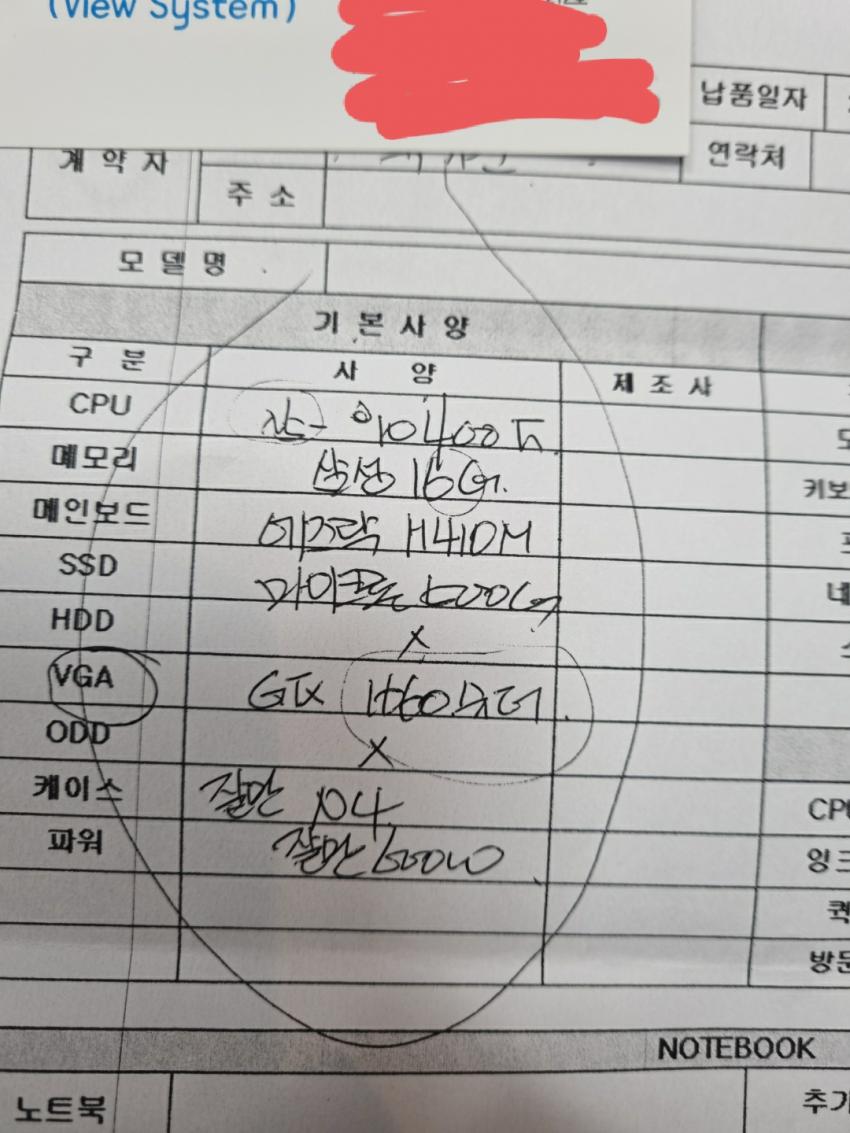 (View System)
납품일자
계약자
연락처
주소
모델명
기본사양
구분 사양 제조사
CPU 10400
메모리 삼성 16G. 키보
메인보드 에즈락 H410M
SSD 마이크론 500G 네
HDD X
VGA GTX 1660슈퍼.
ODD X
케이스 잘만 CPU
파워 잘만 600W 잉크
퀵
방문
NOTEBOOK
노트북 추가